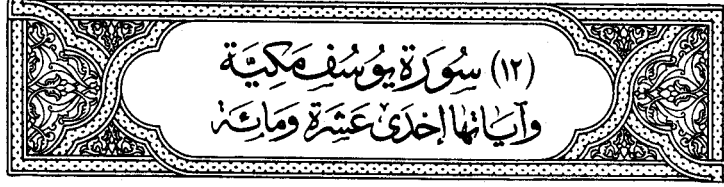 (١٢) سُورَة يُوسُفَ مَكِيَّة
وَآيَاتُهَا إِحْدَى عَشَرَة وَمَائِة